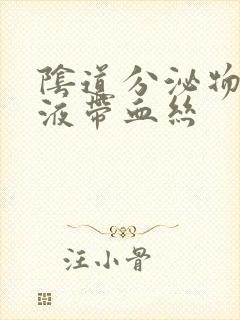 陰道分泌物粘
液帶血絲
汪小骨